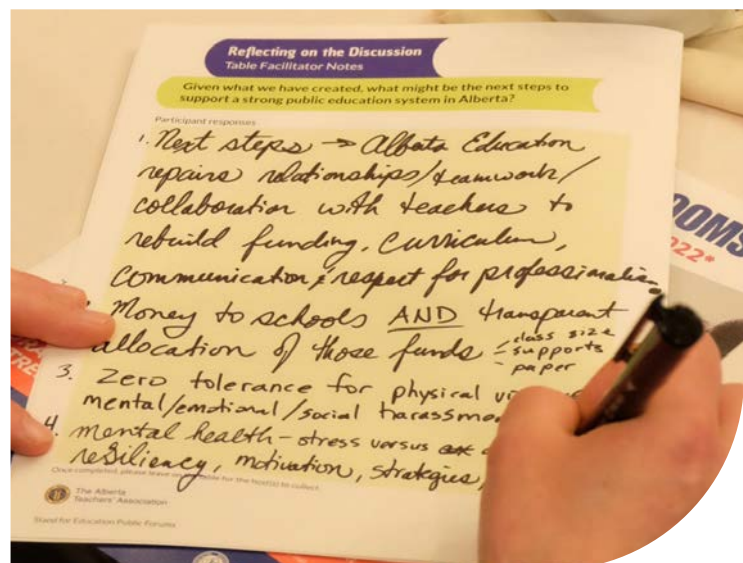 Reflecting on the Discussion
Table Facilitator Notes
Given what we have created, what might be the next steps to
support a strong public education system in Alberta?
Participant responses
1. Next steps → Alberta Education
repairs relationships/teamwork/
collaboration with teachers to
rebuild funding, curriculum,
communication & respect for professionalism
Money to schools AND transparent
allocation of those funds - class size
- supports
- paper
3. Zero tolerance for physical
mental/emotional/social
4. mental health - stress versus
resiliency, motivation, strategies,
Once completed, please leave on table for the host(s) to collect.
The Alberta
Teachers' Association
Stand for Education Public Forums
OOMS
022*